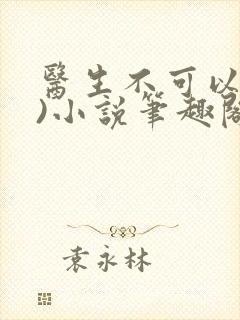 醫生不可以
)小說筆趣閣
袁永林